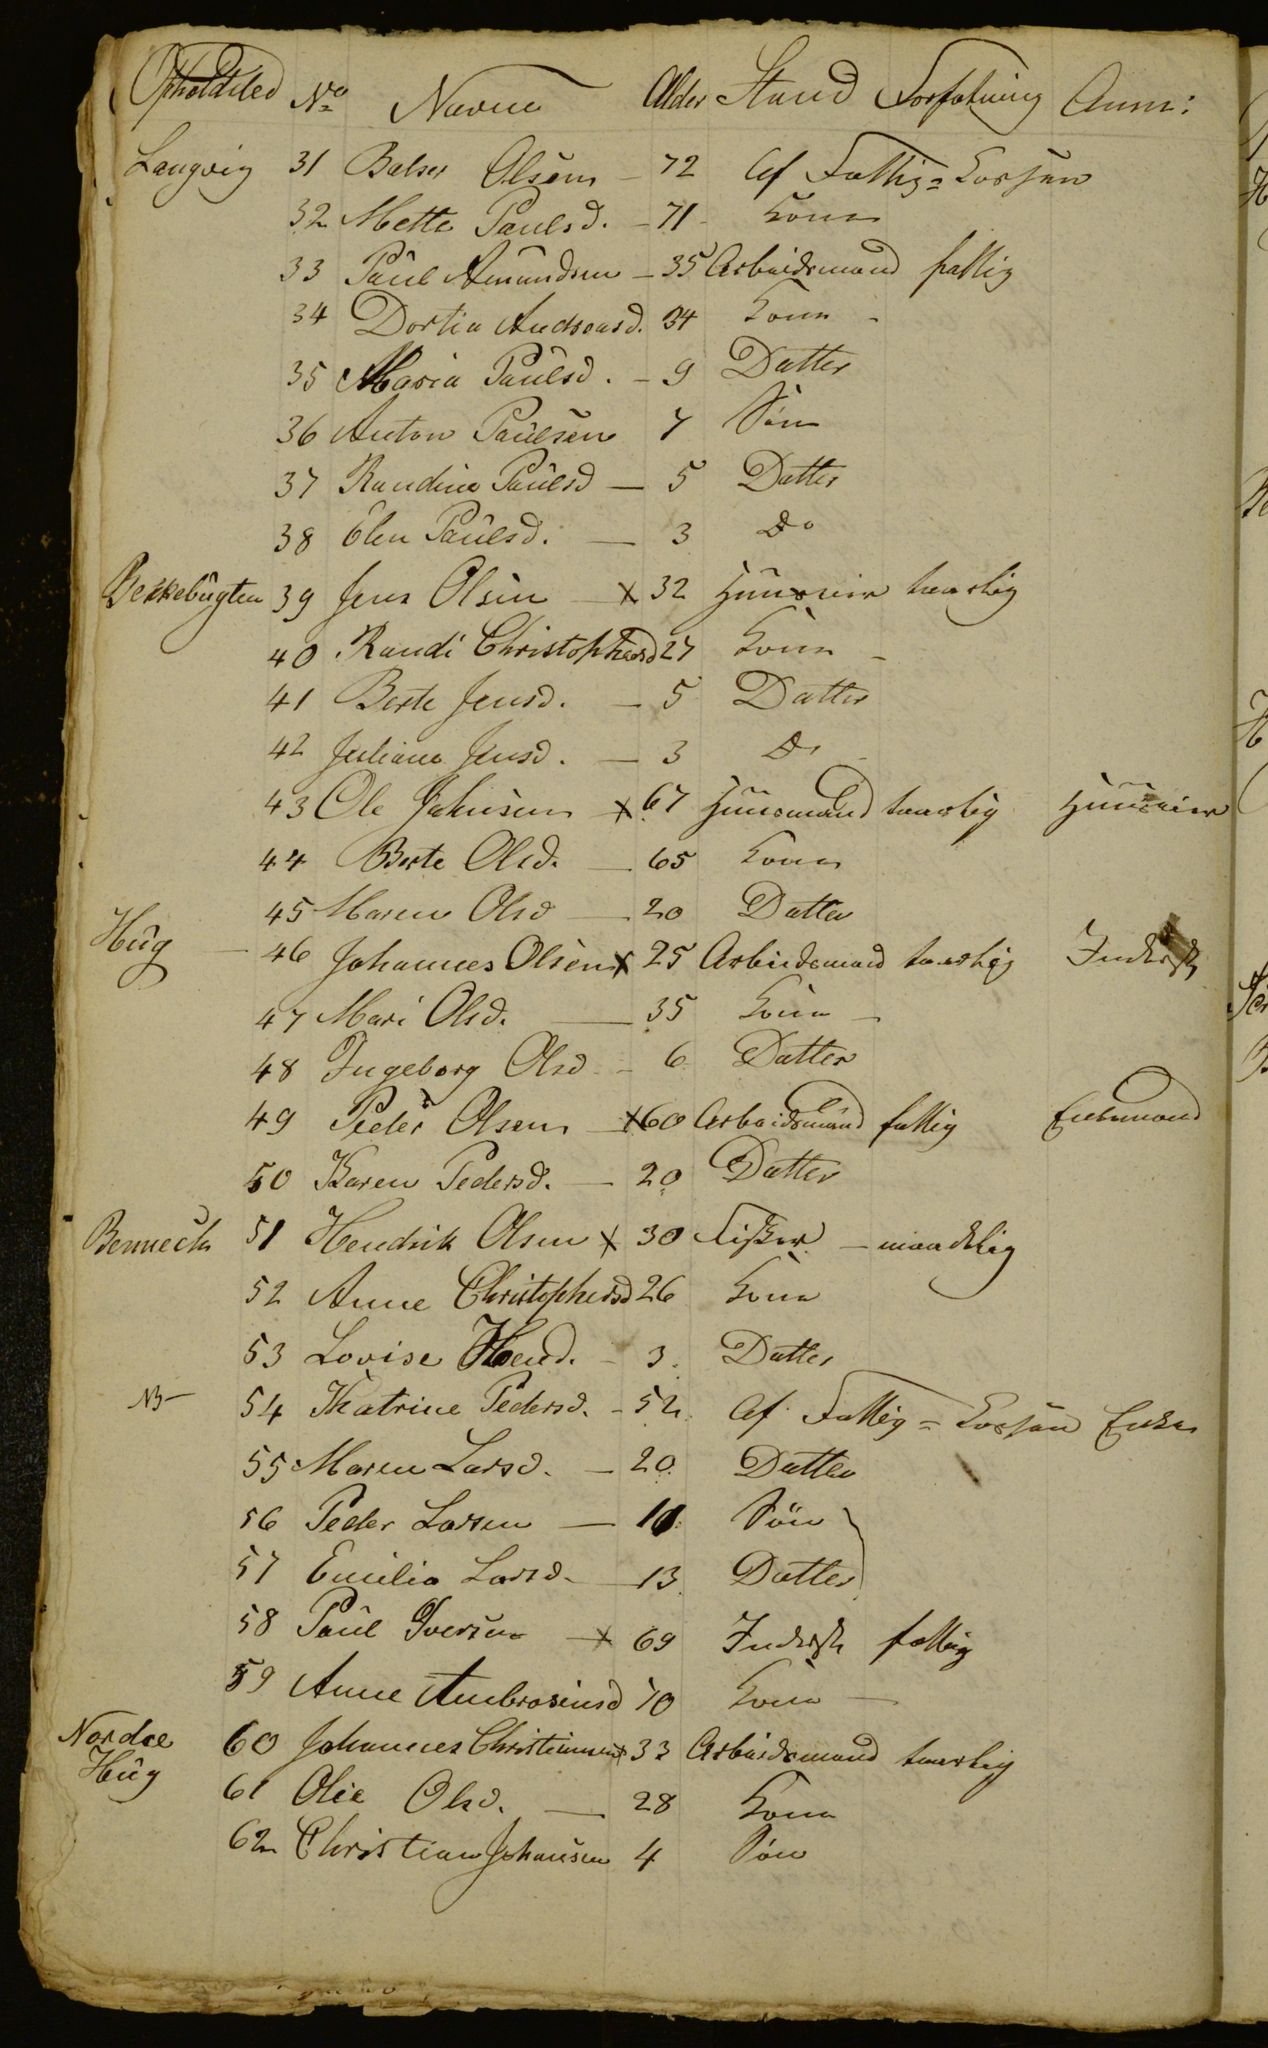 Opholdsted No Navne Alder Stand Forfatning Anm:
Langvig 31 Balser Olsen – 72 Af Fattig= Kassen
32 Mette Paulsd. – 71 Kone
33 Paul Amundsen – 35 Arbeidsmand fattig
34 Dortia Andreasd. 34 Kone –
35 Maria Paulsd. – 9 Datter
36 Anton Paulsen 7 Søn
37 Randine Paulsd – 5 Datter
38 Elen Paulsd. – 3 Do
Bekkebugten 39 Jens Olsen – x 32 Huuseier taarlig
40 Randi Christophersd 27 Kone –
41 Berte Jensd. – 5 Datter
42 Juliane Jensd. – 3 Do
43 Ole Johnsen x 67 Huusmand taarlig Huuseier
44 Berte Olsd. – 65 Kone
45 Maren Olsd – 20 Datter
Hug – 46 Johannes Olsen x 25 Arbeidsmand taarlig Inderst
47 Mari Olsd. – 35 Kone –
48 Ingeborg Olsd – 6 Datter
49 Peder Olsen – x 60 Arbeidsmand fattig Enkemand
50 Karen Pedersd. – 20 Datter
Bennech 51 Hendrik Olsen x 30 Fisker – maadelig
52 Anne Christophersd 26 Kone
53 Lovise Hend. – 3. Datter
NB – 54 Katrine Pedersd. – 52 Af Fattig= Kassen Enke
55 Maren Larsd. – 20. Datter
56 Peder Larsen – Søn
57 Emilia Larsd. – 13 Datter
58 Paul Iversen – x 69 Inderst fattig
59 Anne Ambrosiusd 70 Kone –
Nordre 60 Johannes Christiansen x 33 Arbeidsmand taarlig
Hug
61 Olie Olsd. – 28 Kone
62 Christian Johansen 4 Søn